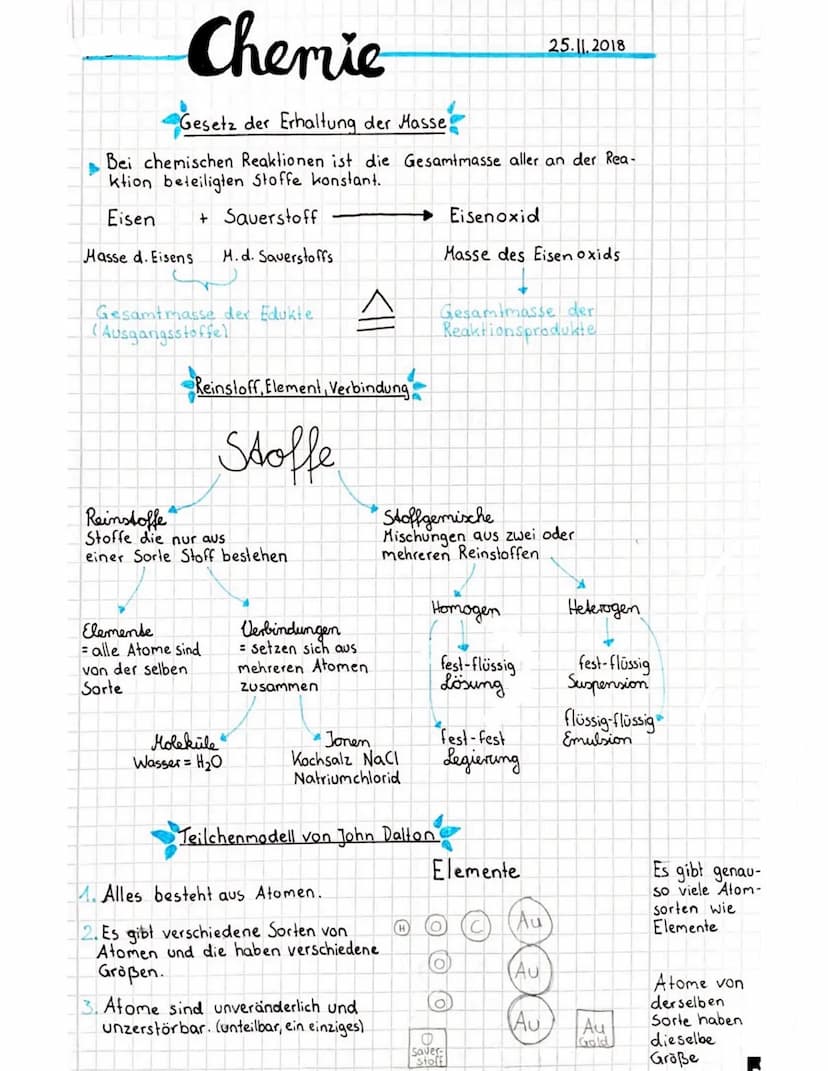 Chemie
25.11.2018
Gesetz der Erhaltung der Masse
Bei chemischen Reaktionen ist die Gesamtmasse aller an der Rea-
ktion beteiligten Stoffe konstant.
Eisen + Sauerstoff → Eisenoxid
Masse d. Eisens M. d. Sauerstoffs Masse des Eisenoxids
Gesamtmasse der Edukte
(Ausgangsstoffe)
≙
Gesamtmasse der
Reaktionsprodukte
Reinstoff, Element, Verbindung
Stoffe
Reinstoffe
Stoffe die nur aus
einer Sorte Stoff bestehen
Stoffgemische
Mischungen aus zwei oder
mehreren Reinstoffen
Elemente
= alle Atome sind
von der selben
Sorte
Verbindungen
= setzen sich aus
mehreren Atomen
zusammen
Homogen
fest-flüssig
Lösung
fest-fest
Legierung
Heterogen
fest-flüssig
Suspension
flüssig-flüssig
Emulsion
Moleküle
Wasser = H₂O
Jonen
Kochsalz NaCl
Natriumchlorid
Teilchenmodell von John Dalton
1. Alles besteht aus Atomen.
2. Es gibt verschiedene Sorten von
Atomen und die haben verschiedene
Größen.
3. Atome sind unveränderlich und
unzerstörbar. (unteilbar, ein einziges)
Elemente
H O C Au
O Au
O Au
O
Sauer-
stoff
Au
Gold
Es gibt genau-
so viele Atom-
sorten wie
Elemente
Atome von
derselben
Sorte haben
dieselbe
Größe